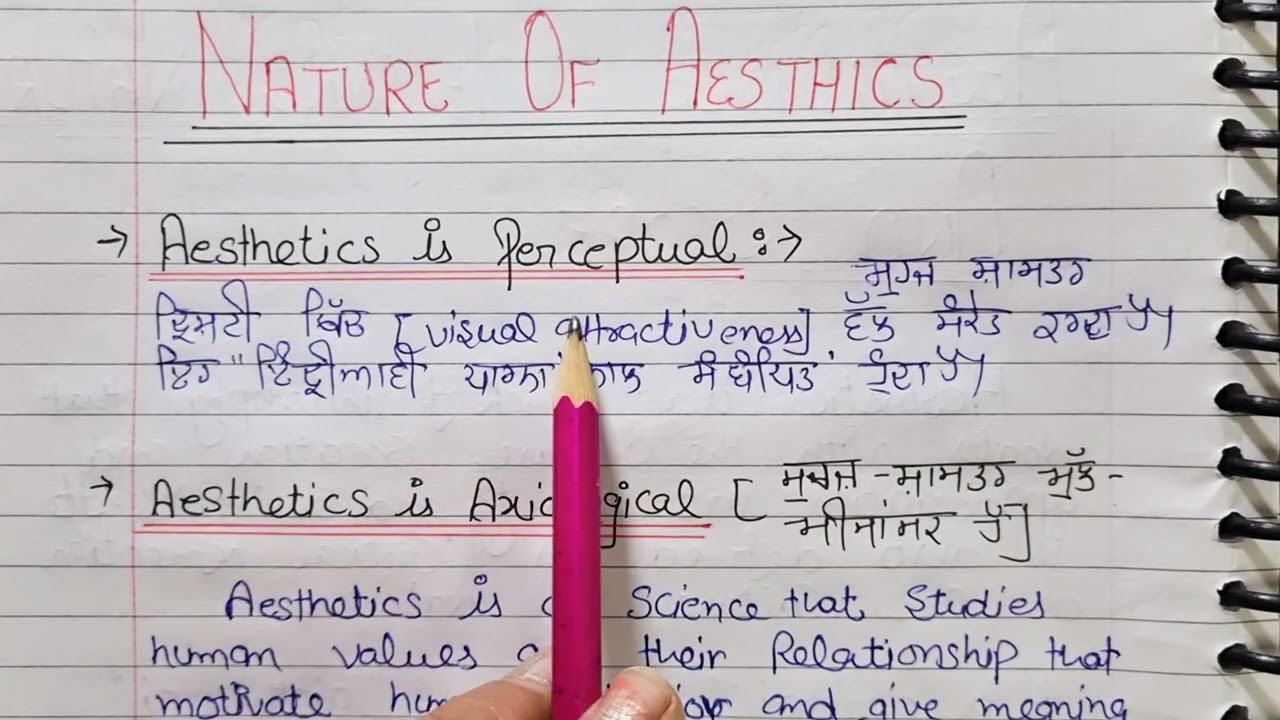 NATURE OF AESTHICS
→ Aesthetics is Perceptual :→
ਸੁਹਜ ਸ਼ਾਸਤਰ
ਦ੍ਰਿਸ਼ਟੀ ਖਿੱਚ [visual attractiveness] ਵੱਲ ਸੰਕੇਤ ਕਰਦਾ ਹੈ।
ਇਹ "ਇੰਦ੍ਰੀਆਵੀ ਨਾਲ ਸੰਬੰਧਿਤ ਹੁੰਦਾ ਹੈ।
→ Aesthetics is [ਸੁਹਜ-ਸ਼ਾਸਤਰ ਮੁੱਲ-
ਮੀਮਾਂਸਕ ਹੈ]
Aesthetics is Science that Studies
human values their Relationship that
motivate and give meaning